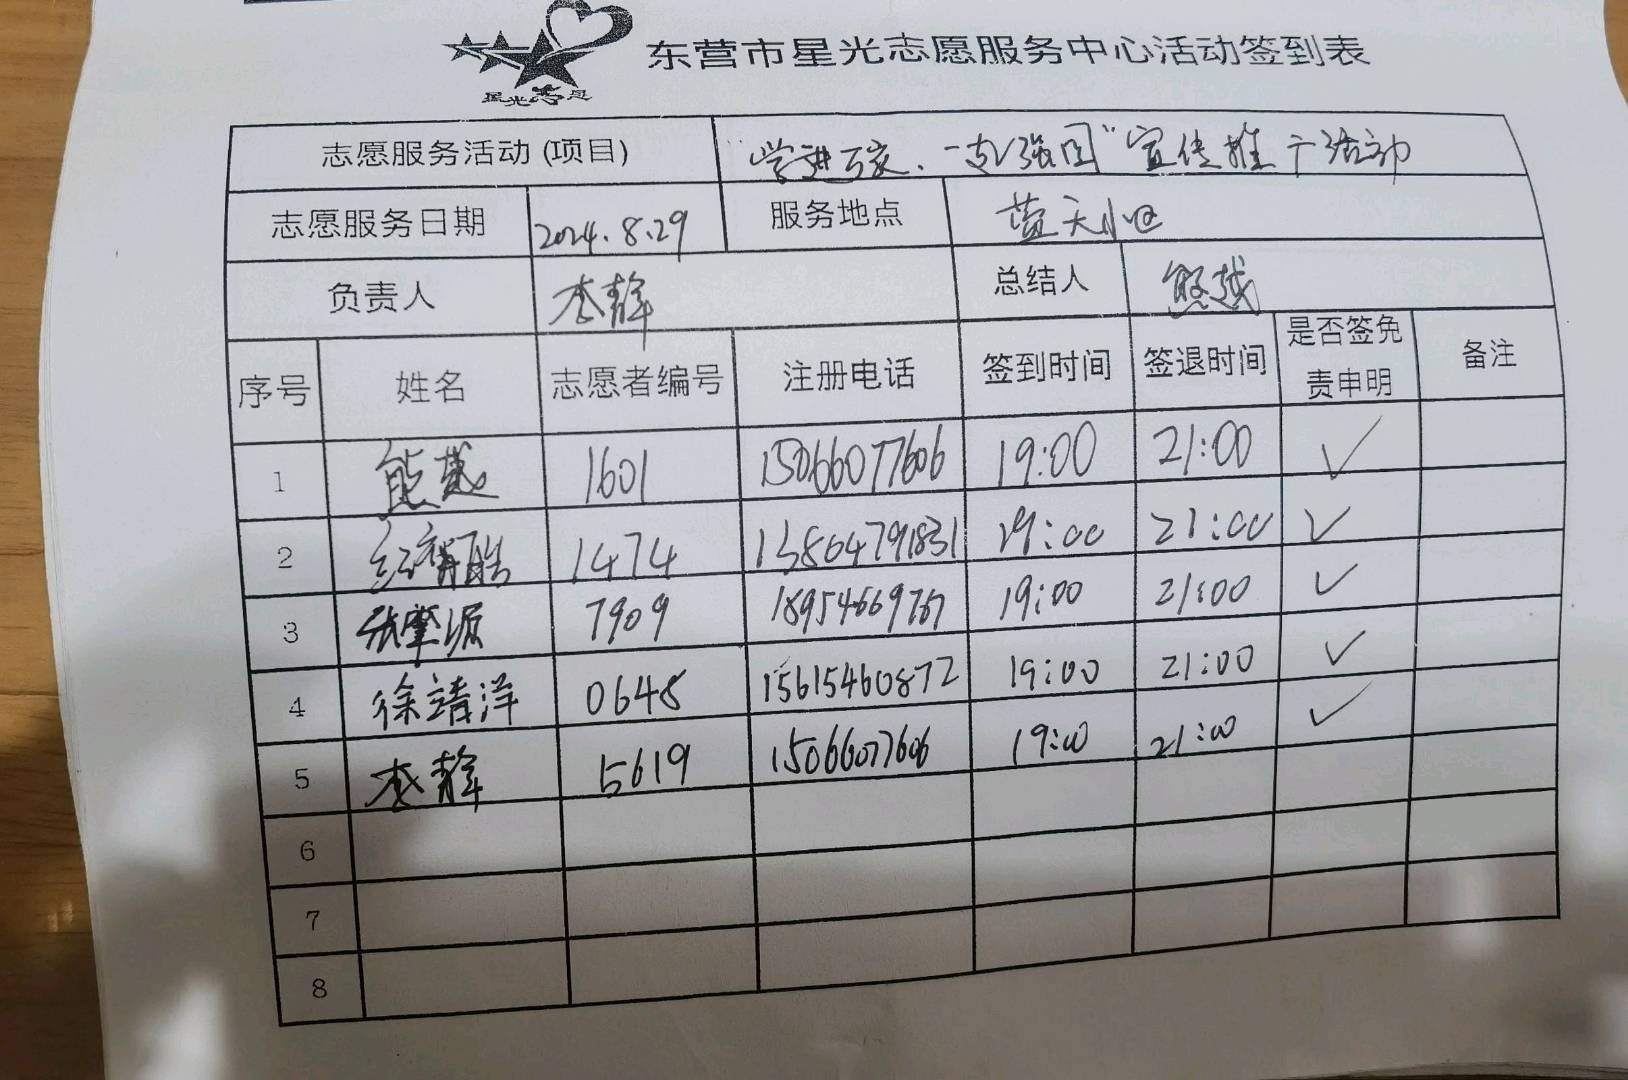 星光志愿
东营市星光志愿服务中心活动签到表
志愿服务活动(项目) 学进万家、一支强国"宣传推广活动
志愿服务日期 2024.8.29 服务地点 蓝天小区
负责人 李静 总结人 熊越
序号 姓名 志愿者编号 注册电话 签到时间 签退时间 是否签免责申明 备注
1 熊越 1601 15066077606 19:00 21:00 ✓
2 1474 13864791831 19:00 21:00 ✓
3 张肇源 7909 18954669767 19:00 21:00 ✓
4 徐靖洋 0648 15615460872 19:00 21:00 ✓
5 李静 5619 15066077606 19:00 21:00 ✓
6
7
8